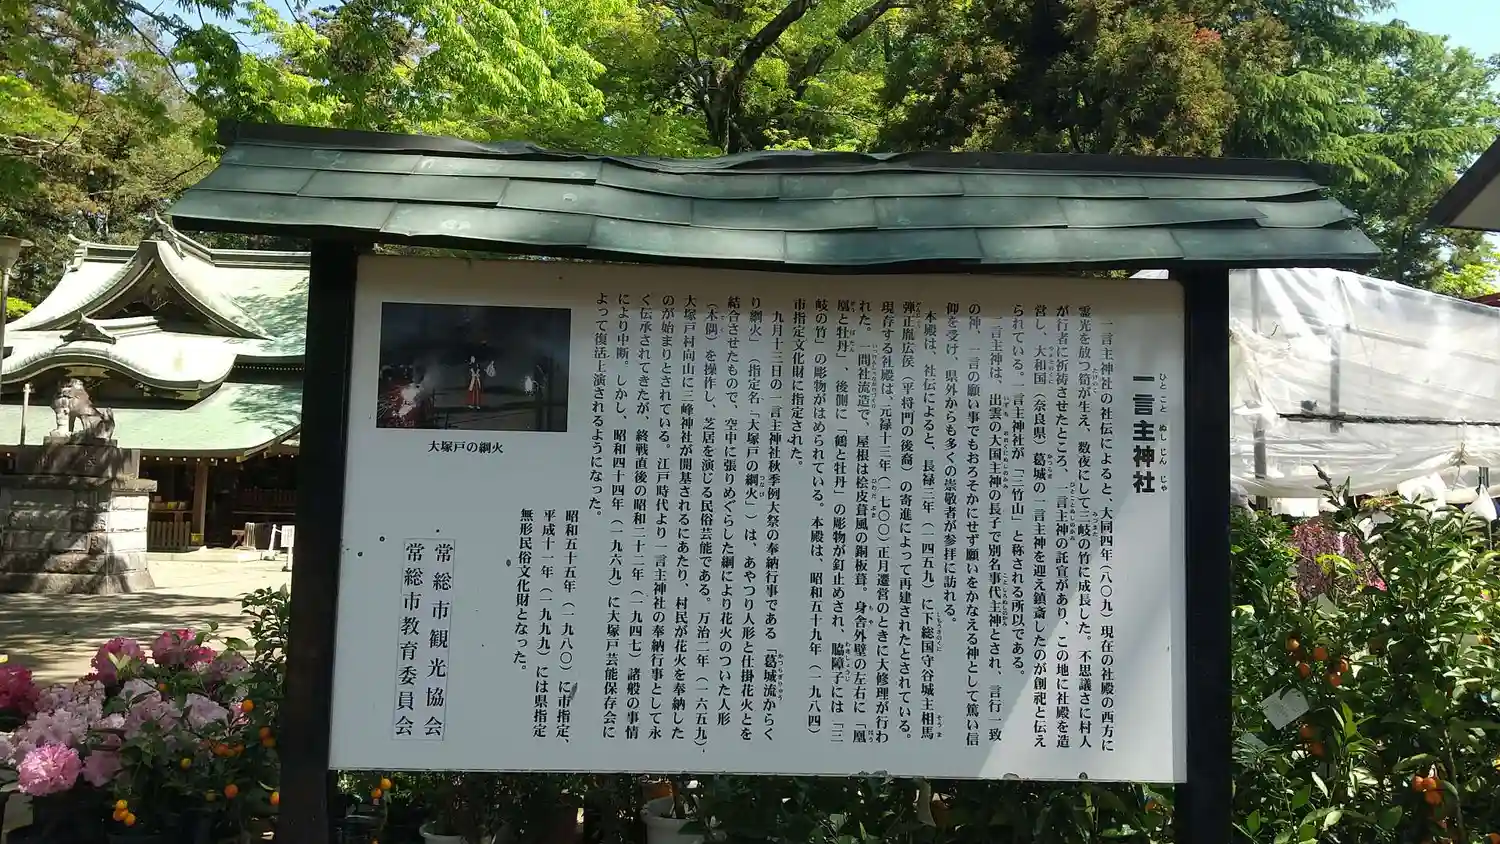 一言主神社
一言主神社の社伝によると、大同四年（八〇九）現在の社殿の西方に
霊光を放つ筍が生え、数夜にして三岐の竹に成長した。不思議さに村人
が行者に祈祷させたところ、一言主神の託宣があり、この地に社殿を造
営し、大和国（奈良県）葛城の一言主神を迎え鎮斎したのが創祀と伝え
られている。一言主神社が「三竹山」と称される所以である。
一言主神は、出雲の大国主神の長子で別名事代主神とされ、言行一致
の神、一言の願い事でもおろそかにせず願いをかなえる神として篤い信
仰を受け、県外からも多くの崇敬者が参拝に訪れる。
本殿は、社伝によると、長禄三年（一四五九）に下総国守谷城主相馬
弾正胤広侯（平将門の後裔）の寄進によって再建されたとされている。
現存する社殿は、元禄十三年（一七〇〇）正月遷営のときに大修理が行わ
れた。一間社流造で、屋根は桧皮葺風の銅板葺。身舎外壁の左右に「鳳
凰と牡丹」、後側に「鶴と牡丹」の彫物が釘止めされ、脇障子には「三
岐の竹」の彫物がはめられている。本殿は、昭和五十九年（一九八四）
市指定文化財に指定された。
九月十三日の一言主神社秋季例大祭の奉納行事である「葛城流からく
り綱火」（指定名「大塚戸の綱火」）は、あやつり人形と仕掛花火とを
結合させたもので、空中に張りめぐらした綱により花火のついた人形
（木偶）を操作し、芝居を演じる民俗芸能である。万治二年（一六五九）、
大塚戸村向山に三峰神社が開基されるにあたり、村民が花火を奉納した
のが始まりとされている。江戸時代より一言主神社の奉納行事として永
く伝承されてきたが、終戦直後の昭和二十二年（一九四七）諸般の事情
により中断。しかし、昭和四十四年（一九六九）に大塚戸芸能保存会に
よって復活上演されるようになった。
昭和五十五年（一九八〇）に市指定、
平成十一年（一九九九）には県指定
無形民俗文化財となった。
大塚戸の綱火
常総市観光協会
常総市教育委員会